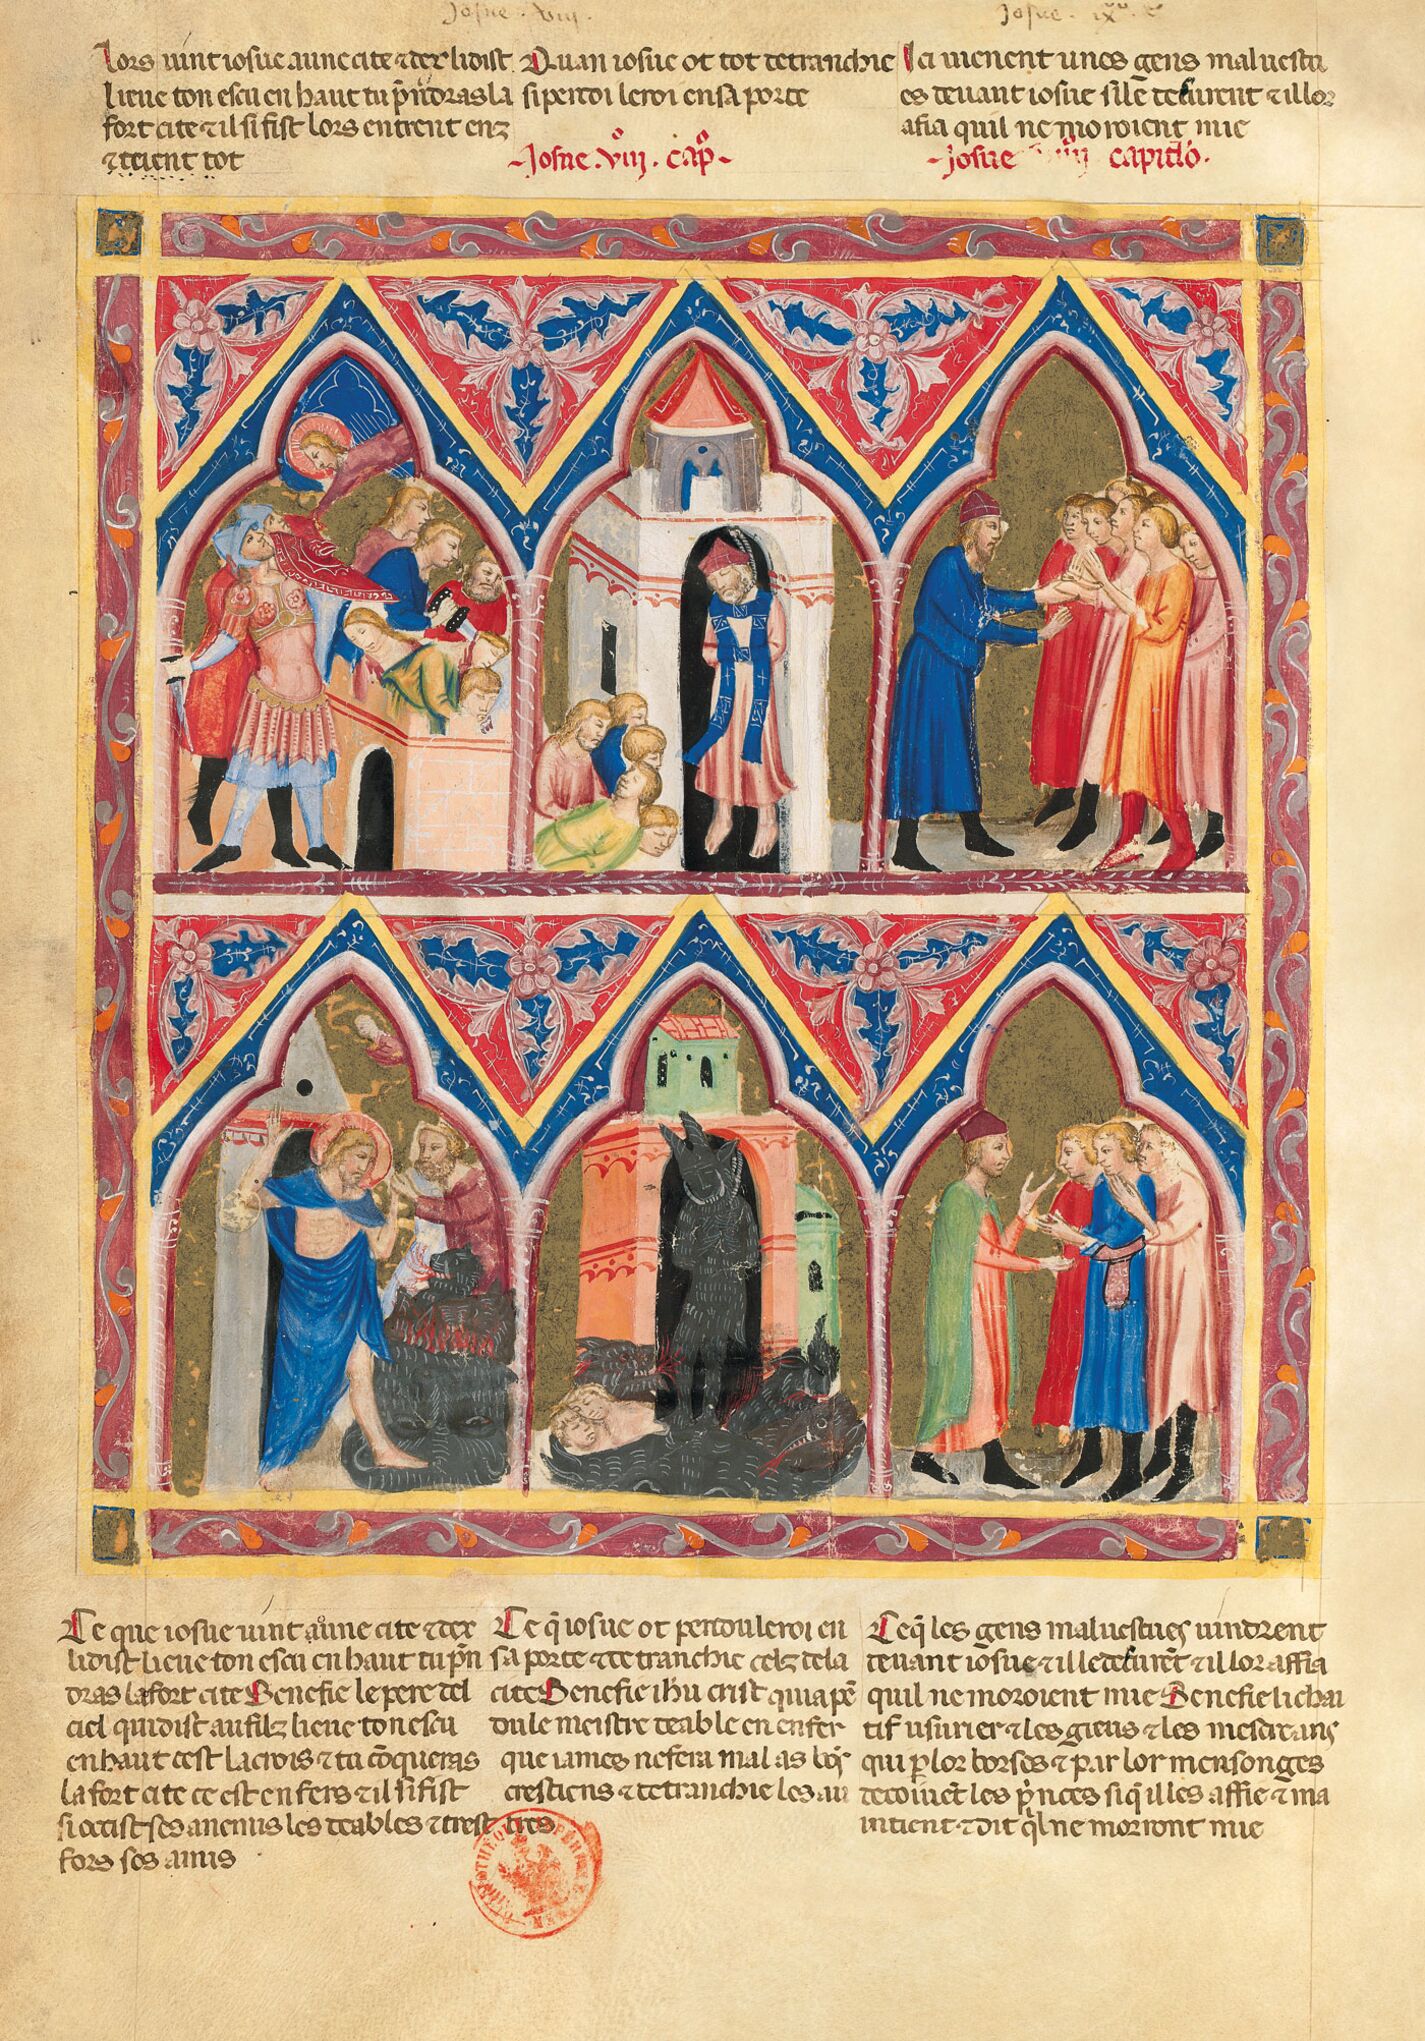 Josue . viii .
Josue . ix . c
Lors vint iosue a une cite & dex li dist
lieue ton escu en haut tu p̃ndras la
fort cite & il si fist lors entrent enz
& tuent tot
Quan iosue ot tot detranchie
si pendoi le roi en sa porte
Josue . viij . cap̃
Ici vienent unes gens mal vestu
es devant iosue si le decurent & il lor
afia quil ne moroient mie
Josue capitło .
Ce que iosue vint a une cite & dex
li dist lieue ton escu en haut tu p̃n
dras la fort cite Senefie le pere del
ciel qui dist au filz lieue ton escu
en haut cest la crois & tu cõqueras
la fort cite ce est enfers & il si fist
si occist ses anemis les deables & trest
fors ses amis
Ce q̃ iosue ot pendu le roi en
sa porte & detranchie celz de la
cite Senefie ihũ crist qui a pẽ
du le meistre deable en enfer
que iames ne fera mal as bõs
crestiens & detranchie les au
tres
Ceq̃ les gens mal vestues vindrent
devant iosue & il le decurẽt & il lor affia
quil ne moroient mie Senefie li chai
tif usurier & les giens & les mescreans
qui p lor borses & par lor mensonges
decoiuẽt les p̃nces si q̃ il les affie & ma
intient & dit q̃l ne morront mie